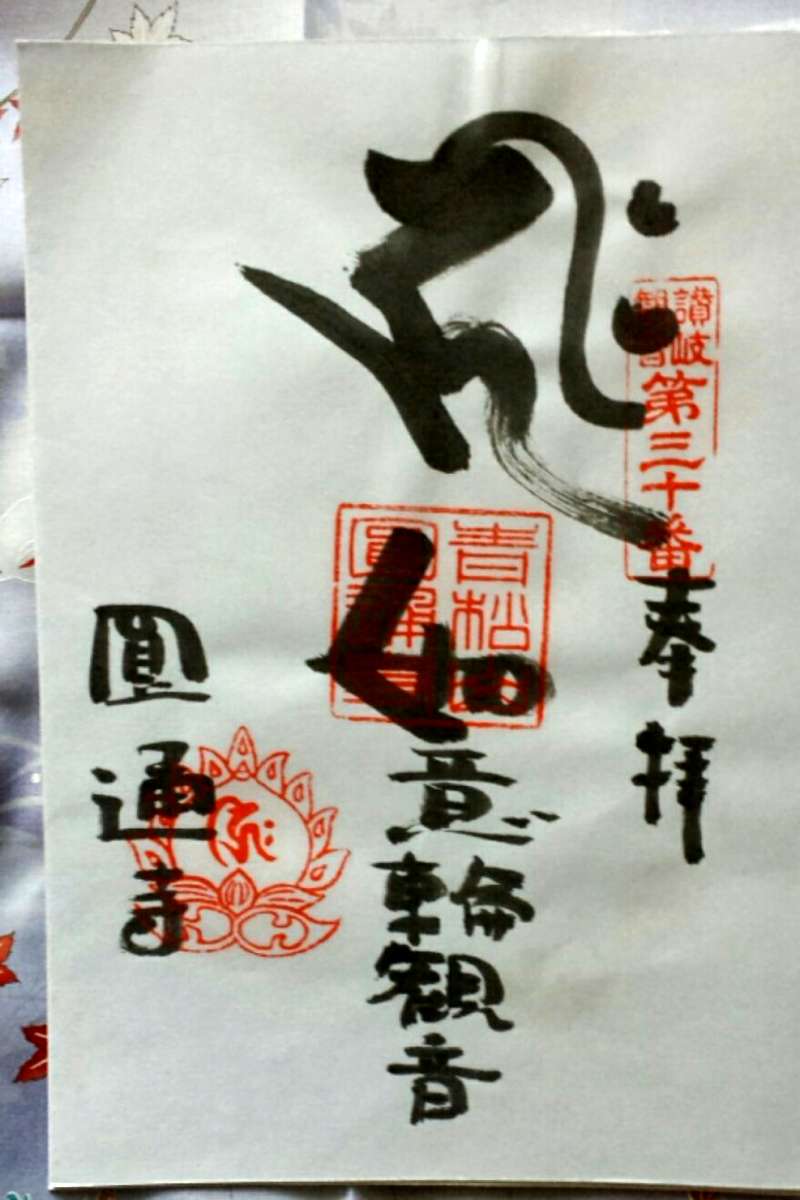 讃岐
観音
第三十番
奉拝
ह्रीः
青松山
圓通寺
如意輪観音
圓通寺
ह्रीः